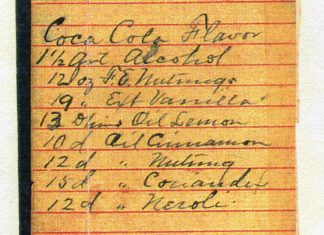 Coca Cola Flavor
1½ qrt Alcohol
12 oz F.E. Nutmegs
19 " Ext Vanilla
13 Oil Lemon
10 d Oil Cinnamon
12 d " Nutmeg
15 d " Coriander
12 d " Neroli